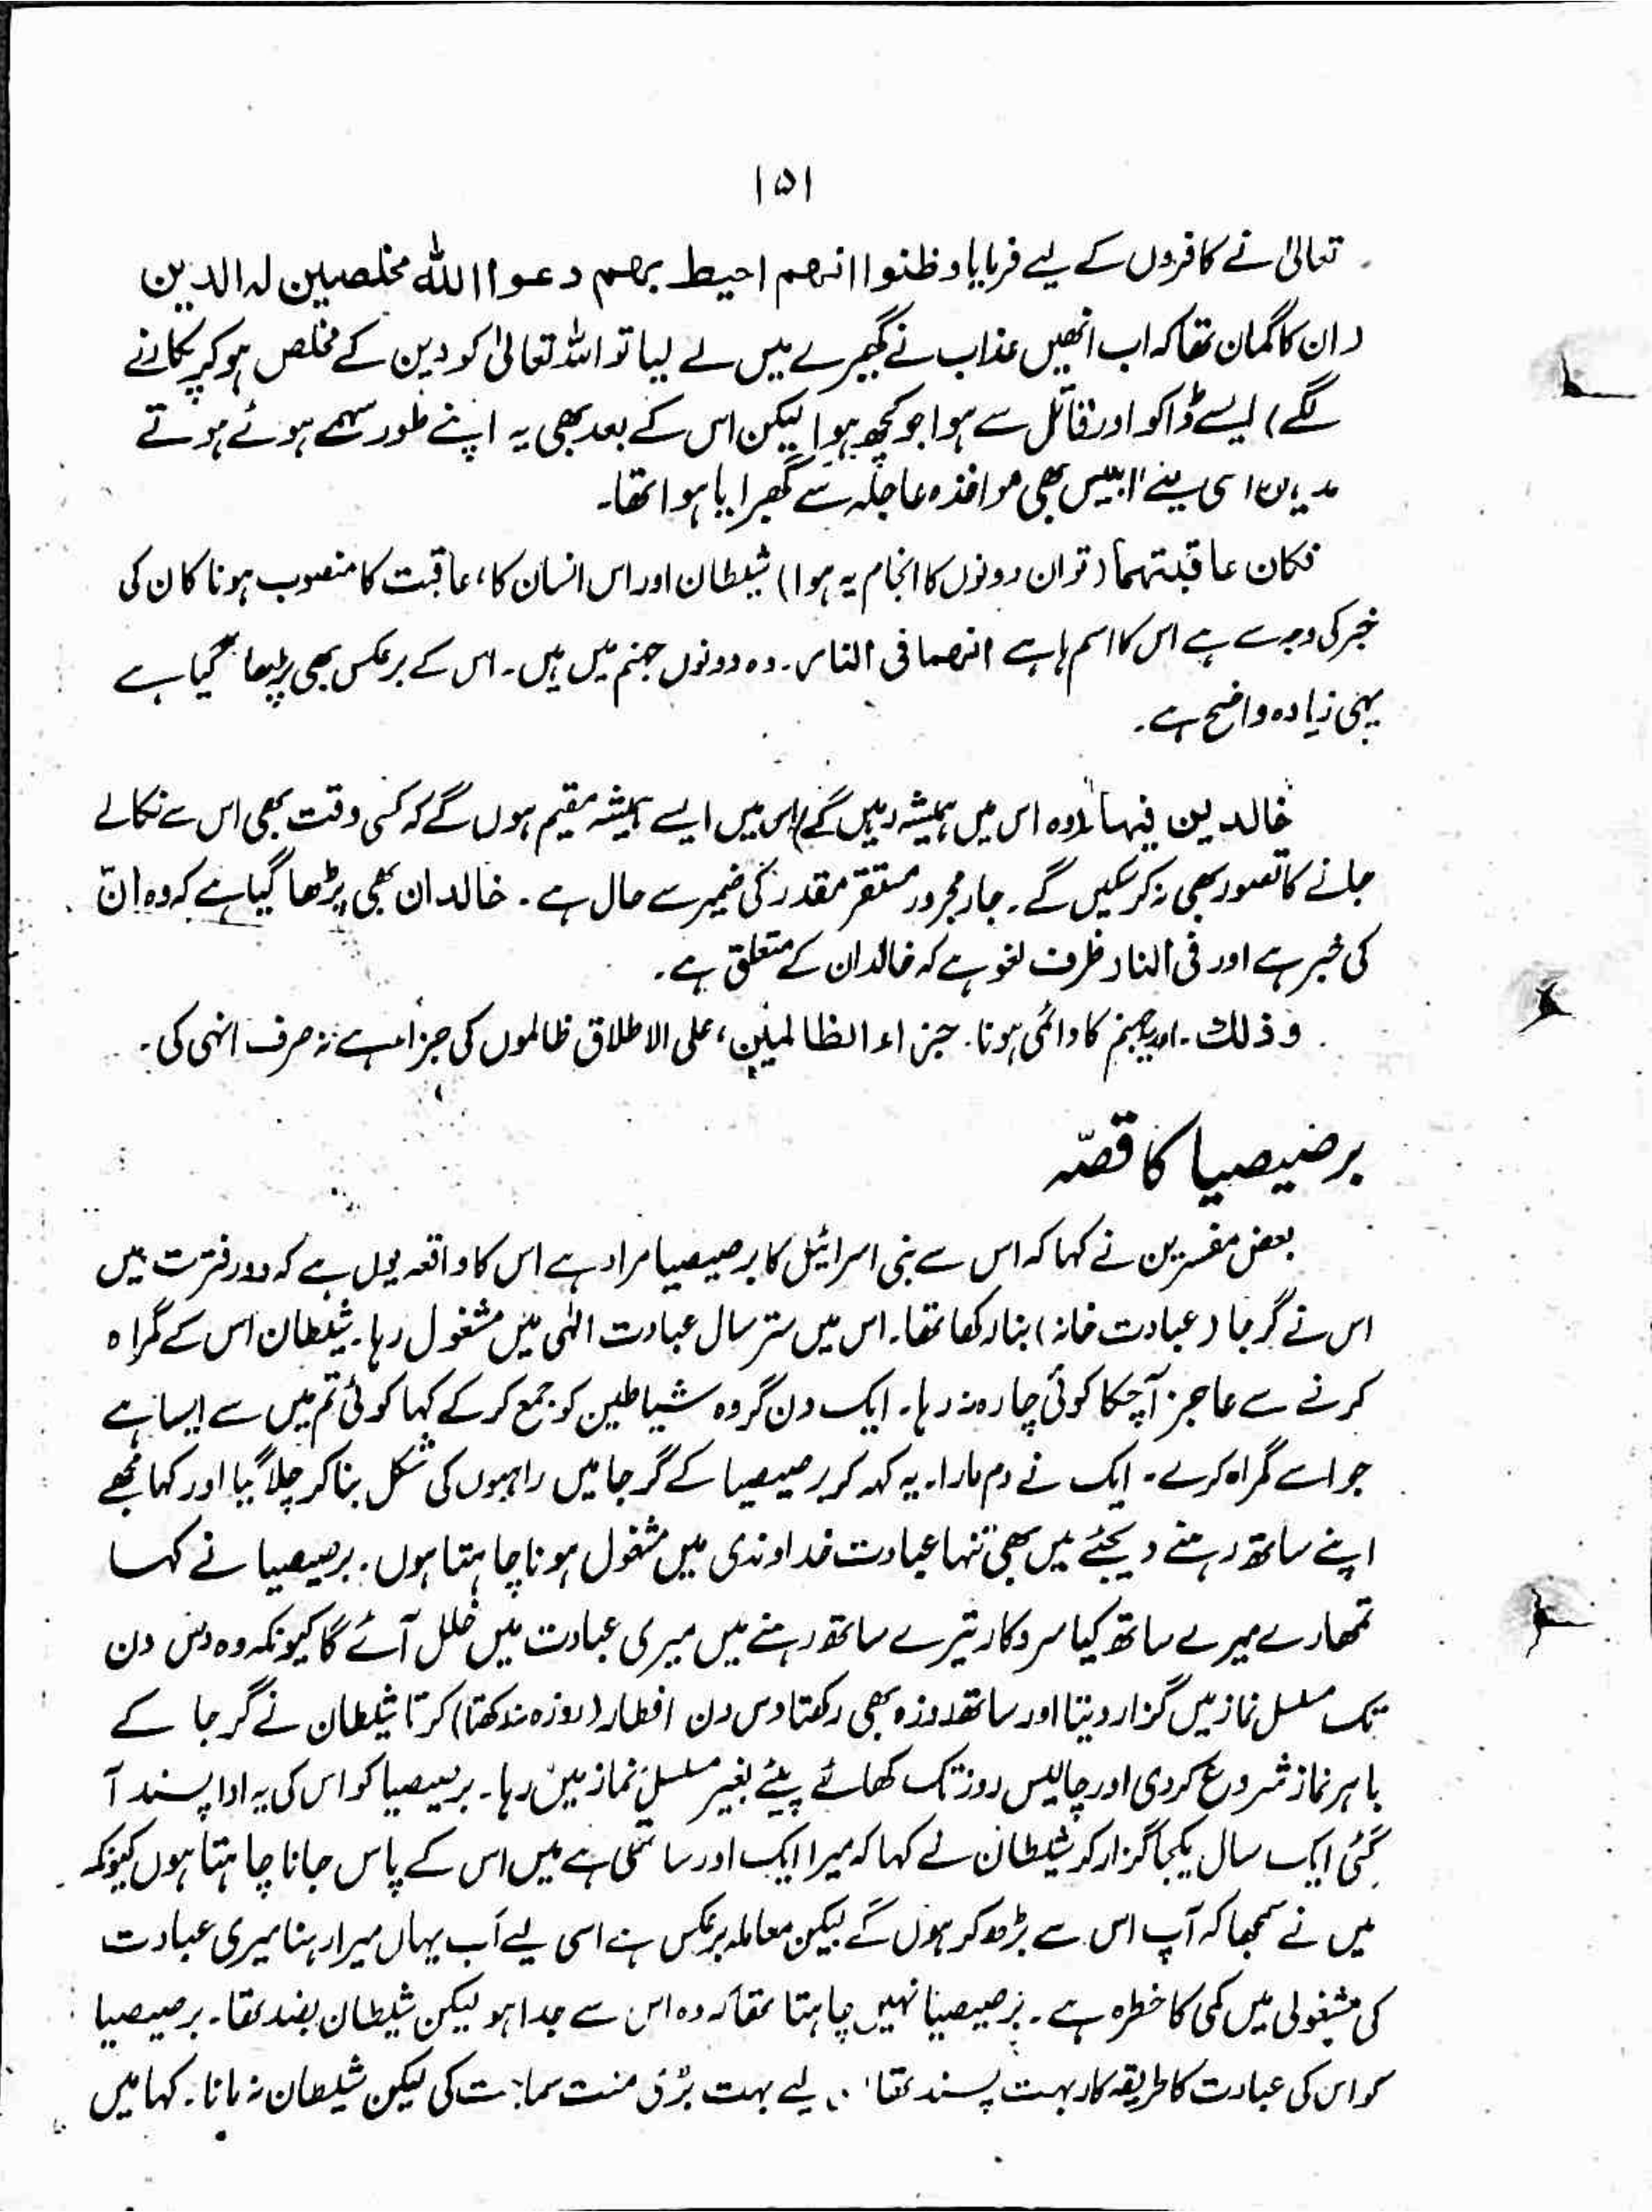 ۱۵۱
تعالیٰ نے کافروں کے لیے فرمایا وظنوا انھم احیط بھم دعوا اللہ مخلصین لہ الدین
(ان کا گمان تھا کہ اب انھیں عذاب نے گھیرے میں لے لیا تو اللہ تعالیٰ کو دین کے مخلص ہو کر پکارنے
لگے) ایسے ڈاکو اور قاتل سے ہوا جو کچھ ہوا لیکن اس کے بعد بھی یہ اپنے طور سہمے ہوئے ہوتے
ہیں اسی لیے ابلیس بھی مواخذہ عاجلہ سے گھبرایا ہوا تھا۔
فکان عاقبتھما (تو ان دونوں کا انجام یہ ہوا) شیطان اور اس انسان کا، عاقبت کا منصوب ہونا کان کی
خبر کی وجہ سے ہے اس کا اسم ہا ہے انھما فی النار۔ وہ دونوں جہنم میں ہیں۔ اس کے برعکس بھی پڑھا گیا ہے
یہی زیادہ واضح ہے۔
خالدین فیھا (وہ اس میں ہمیشہ رہیں گے) اس میں ایسے ہمیشہ مقیم ہوں گے کہ کسی وقت بھی اس سے نکالے
جانے کا تصور بھی نہ کر سکیں گے۔ جار مجرور مستقر مقدر کی ضمیر سے حال ہے۔ خالدان بھی پڑھا گیا ہے کہ وہ اِنّ
کی خبر ہے اور فی النار ظرف لغو ہے کہ خالدان کے متعلق ہے۔
وذلک۔ اور یہ جہنم کا دائمی ہونا۔ جزاء الظالمین، علی الاطلاق ظالموں کی جزا ہے نہ صرف انہی کی۔
برضیصیا کا قصّہ
بعض مفسرین نے کہا کہ اس سے بنی اسرائیل کا برصیصیا مراد ہے اس کا واقعہ یوں ہے کہ دور فترت میں
اس نے گرجا (عبادت خانہ) بنا رکھا تھا۔ اس میں ستر سال عبادت الٰہی میں مشغول رہا۔ شیطان اس کے گمراہ
کرنے سے عاجز آ چکا کوئی چارہ نہ رہا۔ ایک دن گروہ شیاطین کو جمع کر کے کہا کوئی تم میں سے ایسا ہے
جو اسے گمراہ کرے۔ ایک نے دم مارا۔ یہ کہہ کر برصیصیا کے گرجا میں راہبوں کی شکل بنا کر چلا گیا اور کہا مجھے
اپنے ساتھ رہنے دیجئے میں بھی تنہا عبادت خداوندی میں مشغول ہونا چاہتا ہوں۔ برصیصیا نے کہا
تمھارے میرے ساتھ کیا سروکار تیرے ساتھ رہنے میں میری عبادت میں خلل آئے گا کیونکہ وہ دس دن
تک مسلسل نماز میں گزار دیتا اور ساتھ روزہ بھی رکھتا دس دن افطار (روزہ نہ رکھتا) کرتا شیطان نے گرجا کے
باہر نماز شروع کر دی اور چالیس روز تک کھائے پیئے بغیر مسلسل نماز میں رہا۔ برصیصیا کو اس کی یہ ادا پسند آ
گئی ایک سال یکجا گزار کر شیطان نے کہا کہ میرا ایک اور ساتھی ہے میں اس کے پاس جانا چاہتا ہوں کیونکہ
میں نے سمجھا کہ آپ اس سے بڑھ کر ہوں گے لیکن معاملہ برعکس ہے اسی لیے اب یہاں میرا رہنا میری عبادت
کی مشغولی میں کمی کا خطرہ ہے۔ برصیصیا نہیں چاہتا تھا کہ وہ اس سے جدا ہو لیکن شیطان بضد تھا۔ برصیصیا
کو اس کی عبادت کا طریقہ کار بہت پسند تھا لیے بہت بڑی منت سماجت کی لیکن شیطان نہ مانا۔ کہا میں